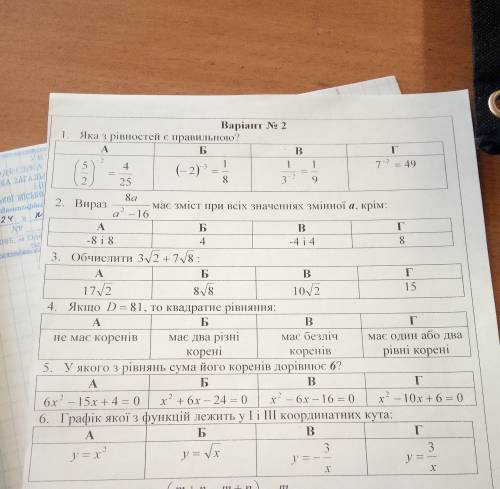 Варіант № 2
1. Яка з рівностей є правильною?
А Б В Г
(5/2)^-2 = 4/25 (−2)^-3 = 1/8 1/3^-2 = 1/9 7^-2 = 49
2. Вираз 8a/(a² −16) має зміст при всіх значеннях змінної а, крім:
А Б В Г
-8 і 8 4 -4 і 4 8
3. Обчислити 3√2 + 7√8 :
А Б В Г
17√2 8√8 10√2 15
4. Якщо D = 81, то квадратне рівняння:
А Б В Г
не має коренів має два різні має безліч має один або два
корені коренів рівні корені
5. У якого з рівнянь сума його коренів дорівнює 6?
А Б В Г
6x² −15x + 4 = 0 x² + 6x − 24 = 0 x² − 6x −16 = 0 x² −10x + 6 = 0
6. Графік якої з функцій лежить у І і ІІІ координатних кута:
А Б В Г
y = x² y = √x y = −3/x y = 3/x